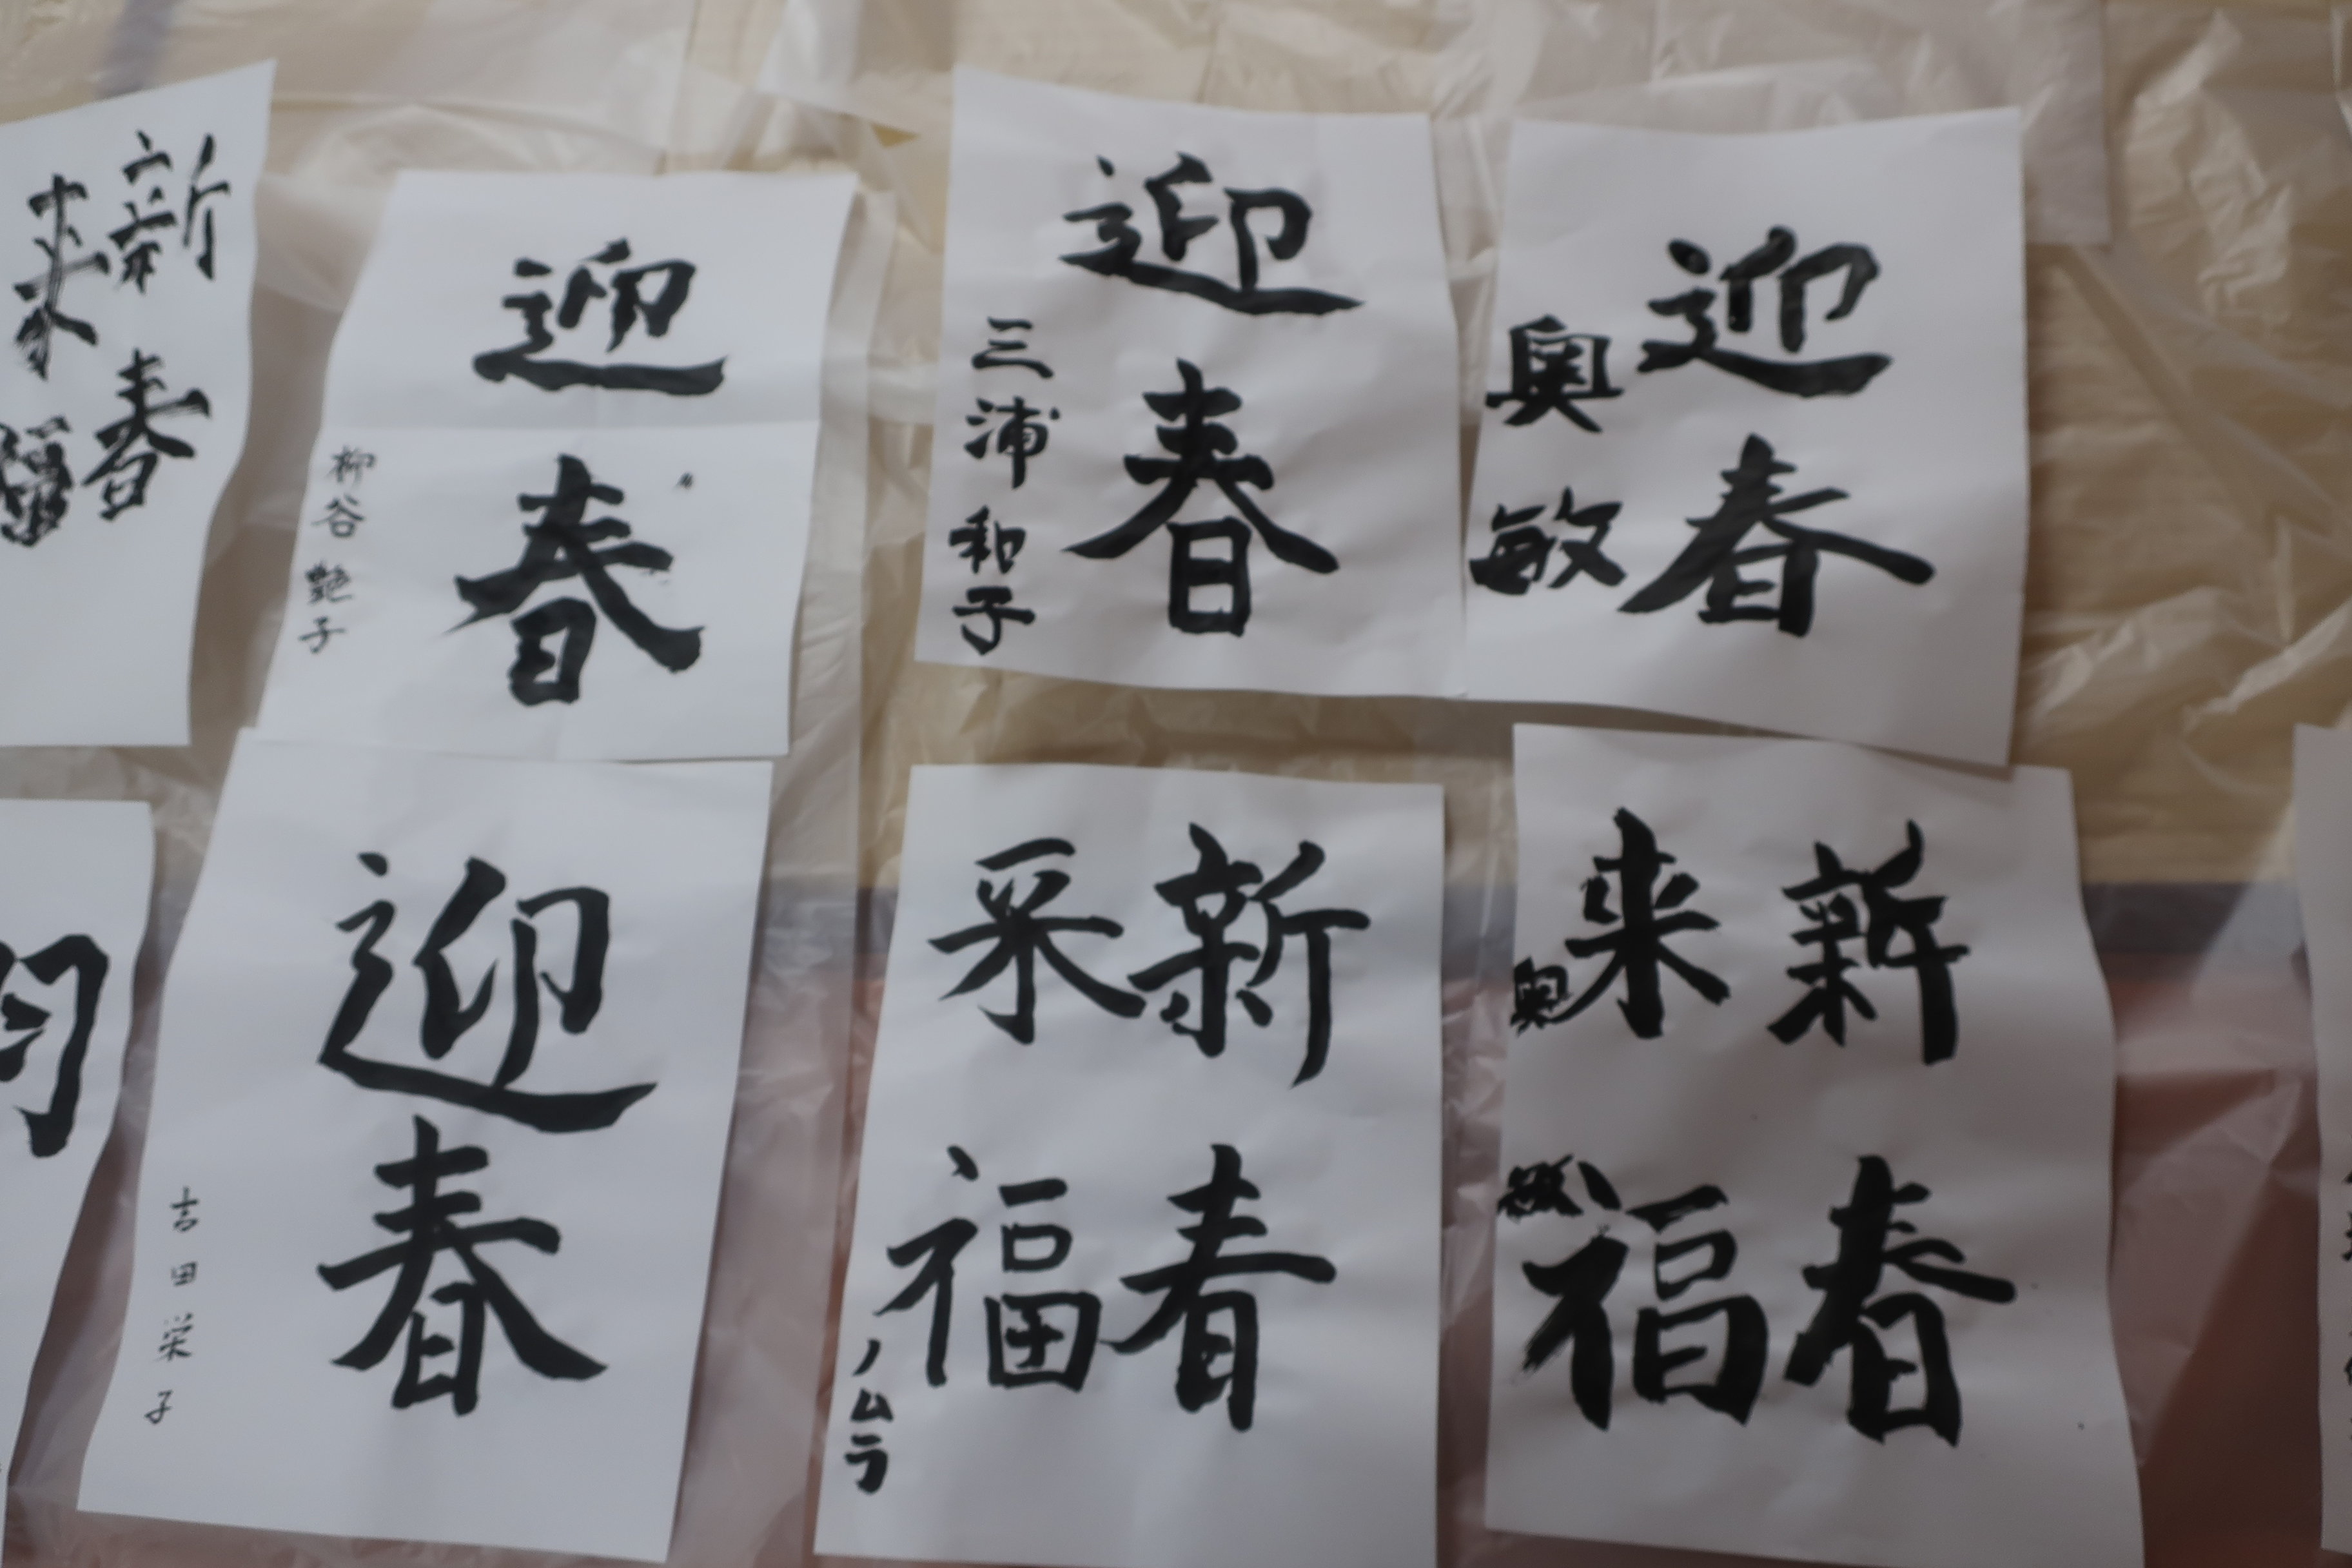 新春
来福
迎春
柳谷艶子
迎春
三浦和子
迎春
奥敏
迎春
吉田栄子
新春
来福
ノムラ
新春
来福
奥敏